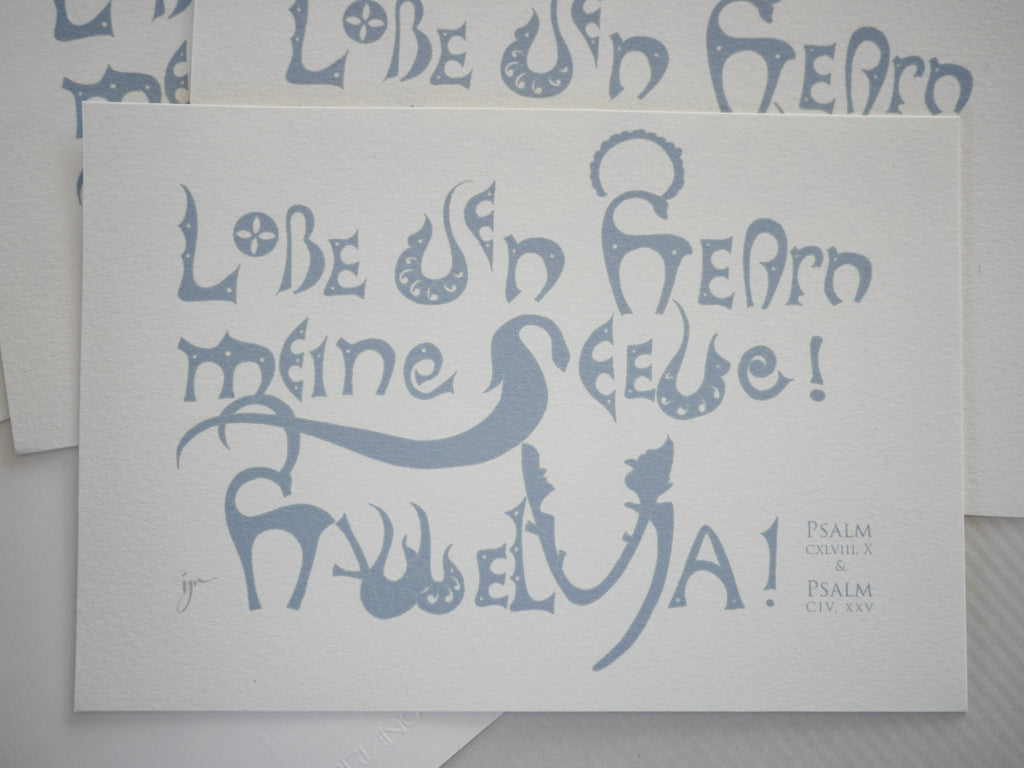 Lobe den Herrn
Lobe den Herrn
meine Seele!
Halleluja!
PSALM
CXLVIII, X
&
PSALM
CIV, XXV